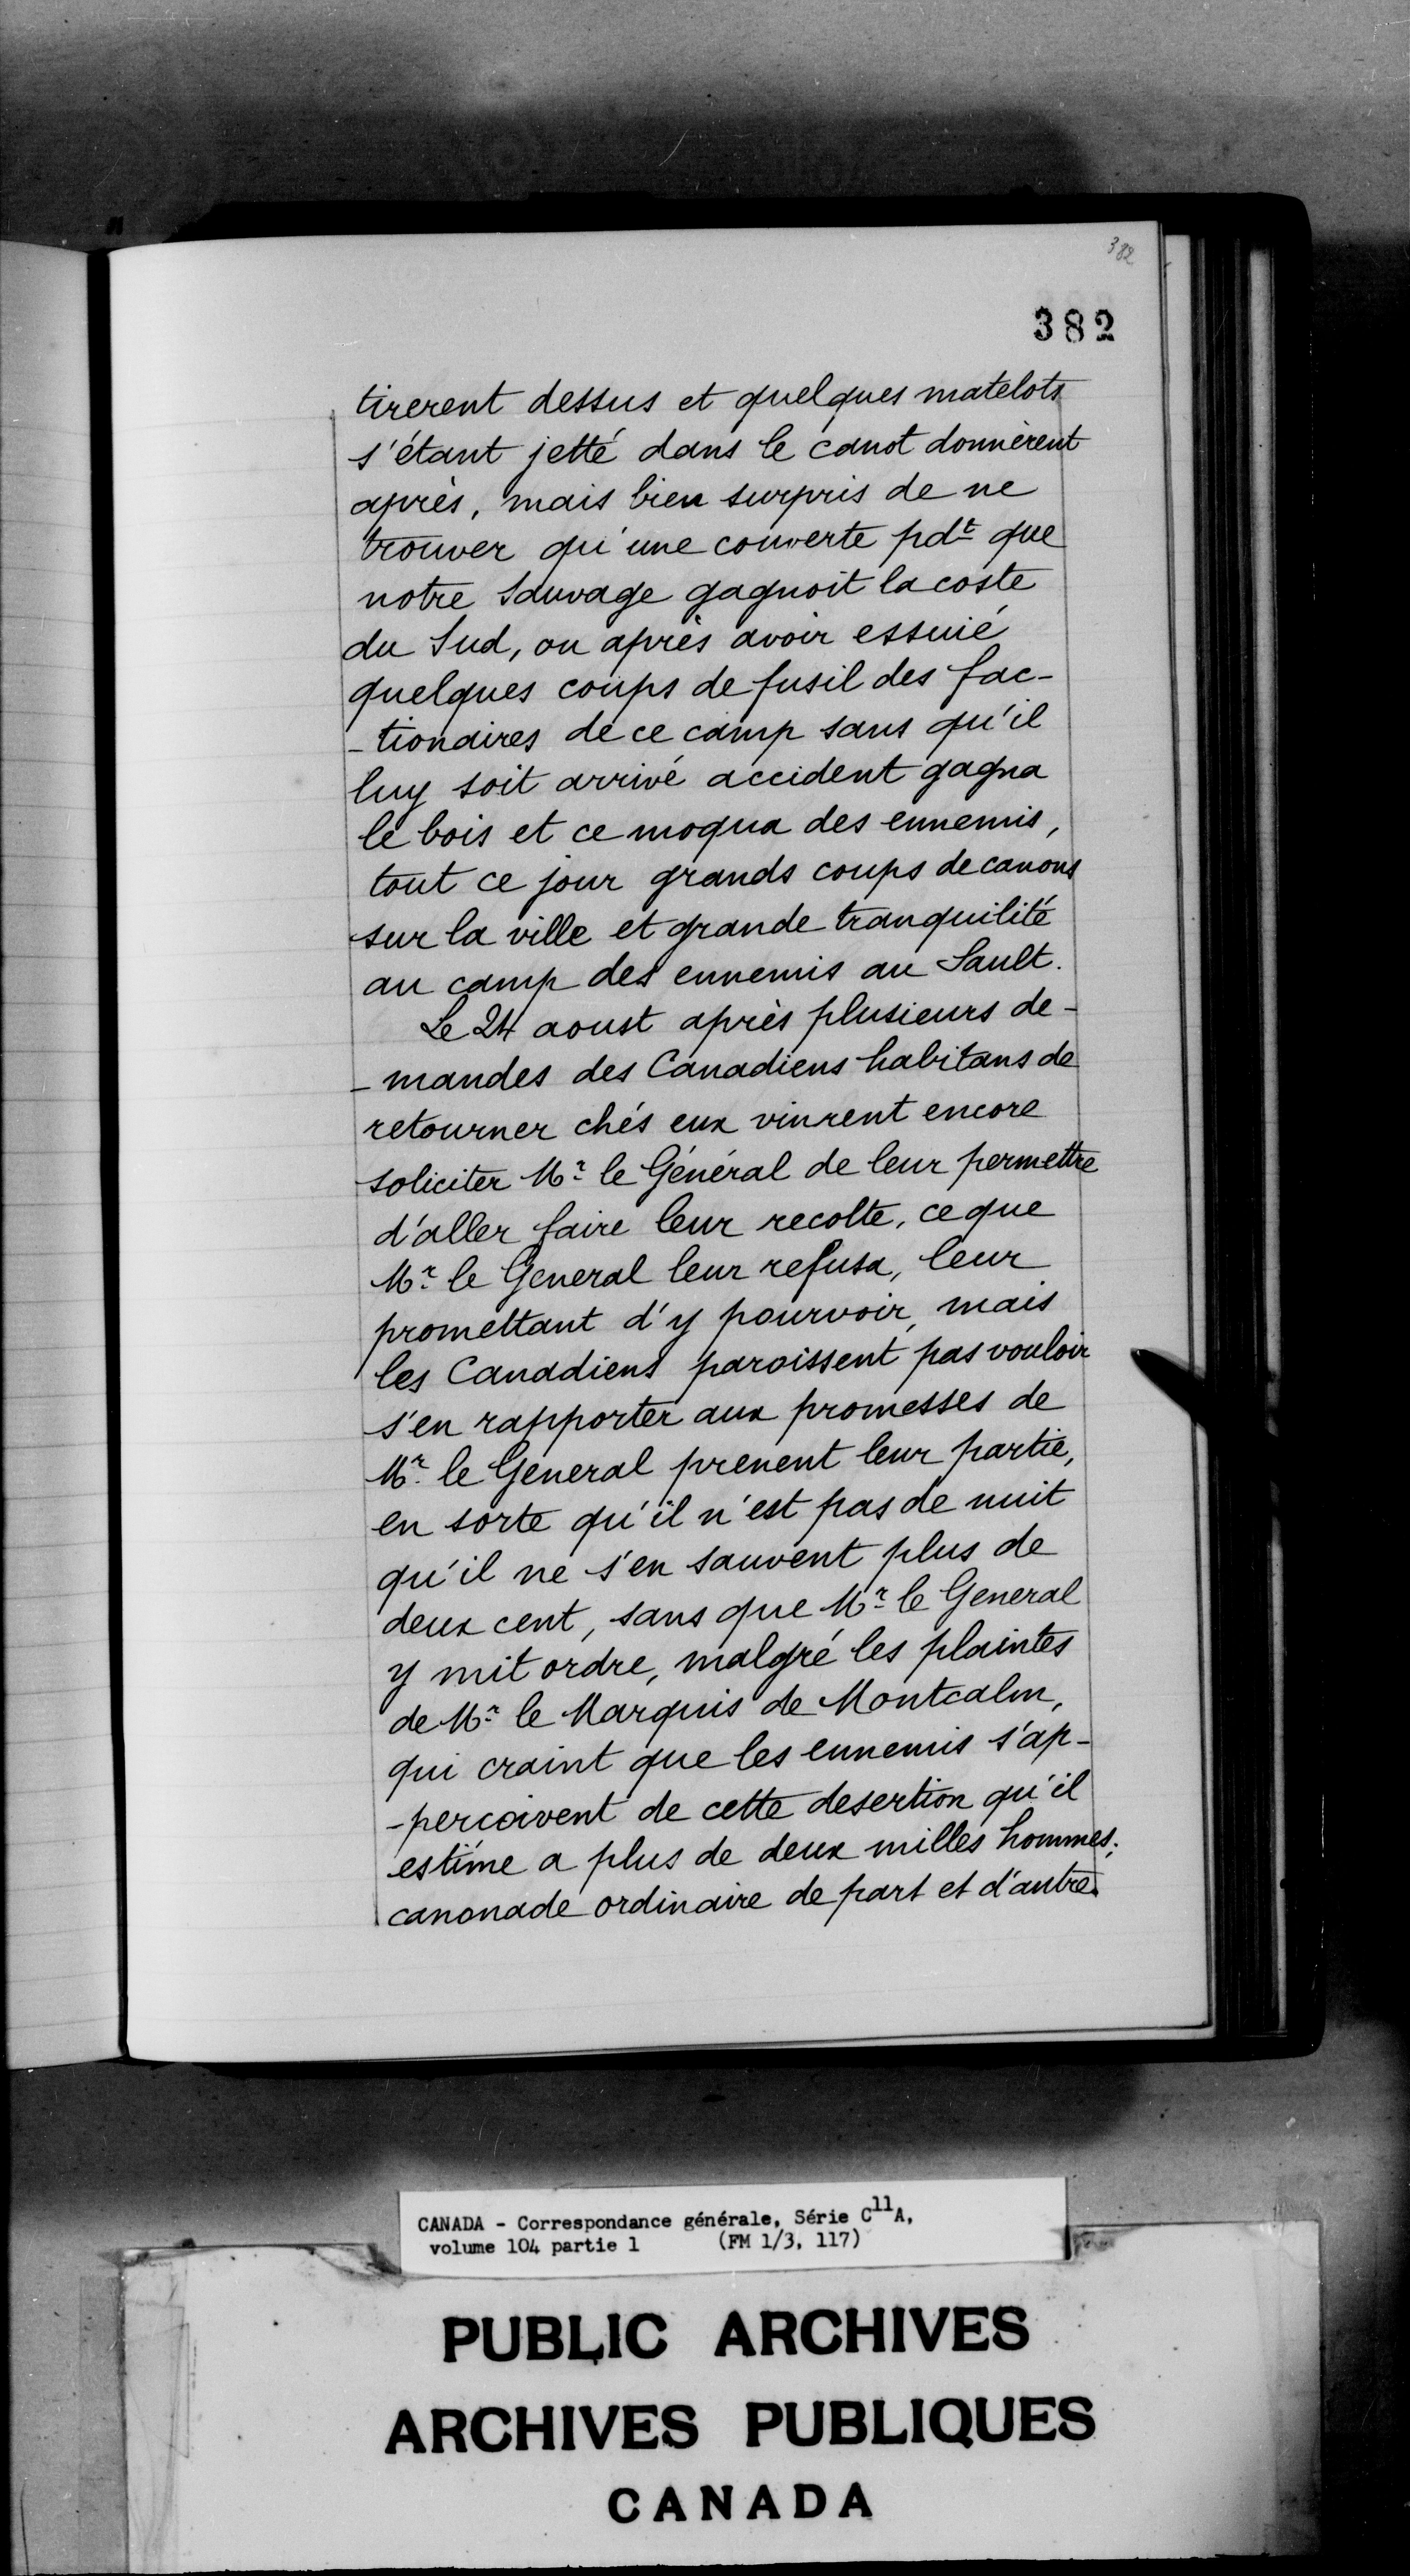 382
382
tirerent dessus et quelques matelots
s'étant jetté dans le canot donnèrent
après, mais bien surpris de ne
trouver qu'une couverte pdt que
notre Sauvage gagnoit la coste
du Sud, ou après avoir essuié
quelques coups de fusil des fac-
-tionaires de ce camp sans qu'il
luy soit arrivé accident gagna
le bois et ce moqua des ennemis,
tout ce jour grands coups de canons
sur la ville et grande tranquilité
au camp des ennemis au Sault.
Le 24 aoust après plusieurs de-
-mandes des Canadiens habitans de
retourner chés eux vinrent encore
soliciter Mr le Général de leur permettre
d'aller faire leur recolte, ce que
Mr le General leur refusa, leur
promettant d'y pourvoir, mais
les Canadiens paroissent pas vouloir
s'en rapporter aux promesses de
Mr le General prenent leur partie,
en sorte qu'il n'est pas de nuit
qu'il ne s'en sauvent plus de
deux cent, sans que Mr le General
y mit ordre, malgré les plaintes
de Mr le Marquis de Montcalm,
qui craint que les ennemis s'ap-
-percoivent de cette desertion qu'il
estime a plus de deux milles hommes;
canonade ordinaire de part et d'autre.
CANADA - Correspondance générale, Série C11A,
volume 104 partie 1 (FM 1/3, 117)
PUBLIC ARCHIVES
ARCHIVES PUBLIQUES
CANADA